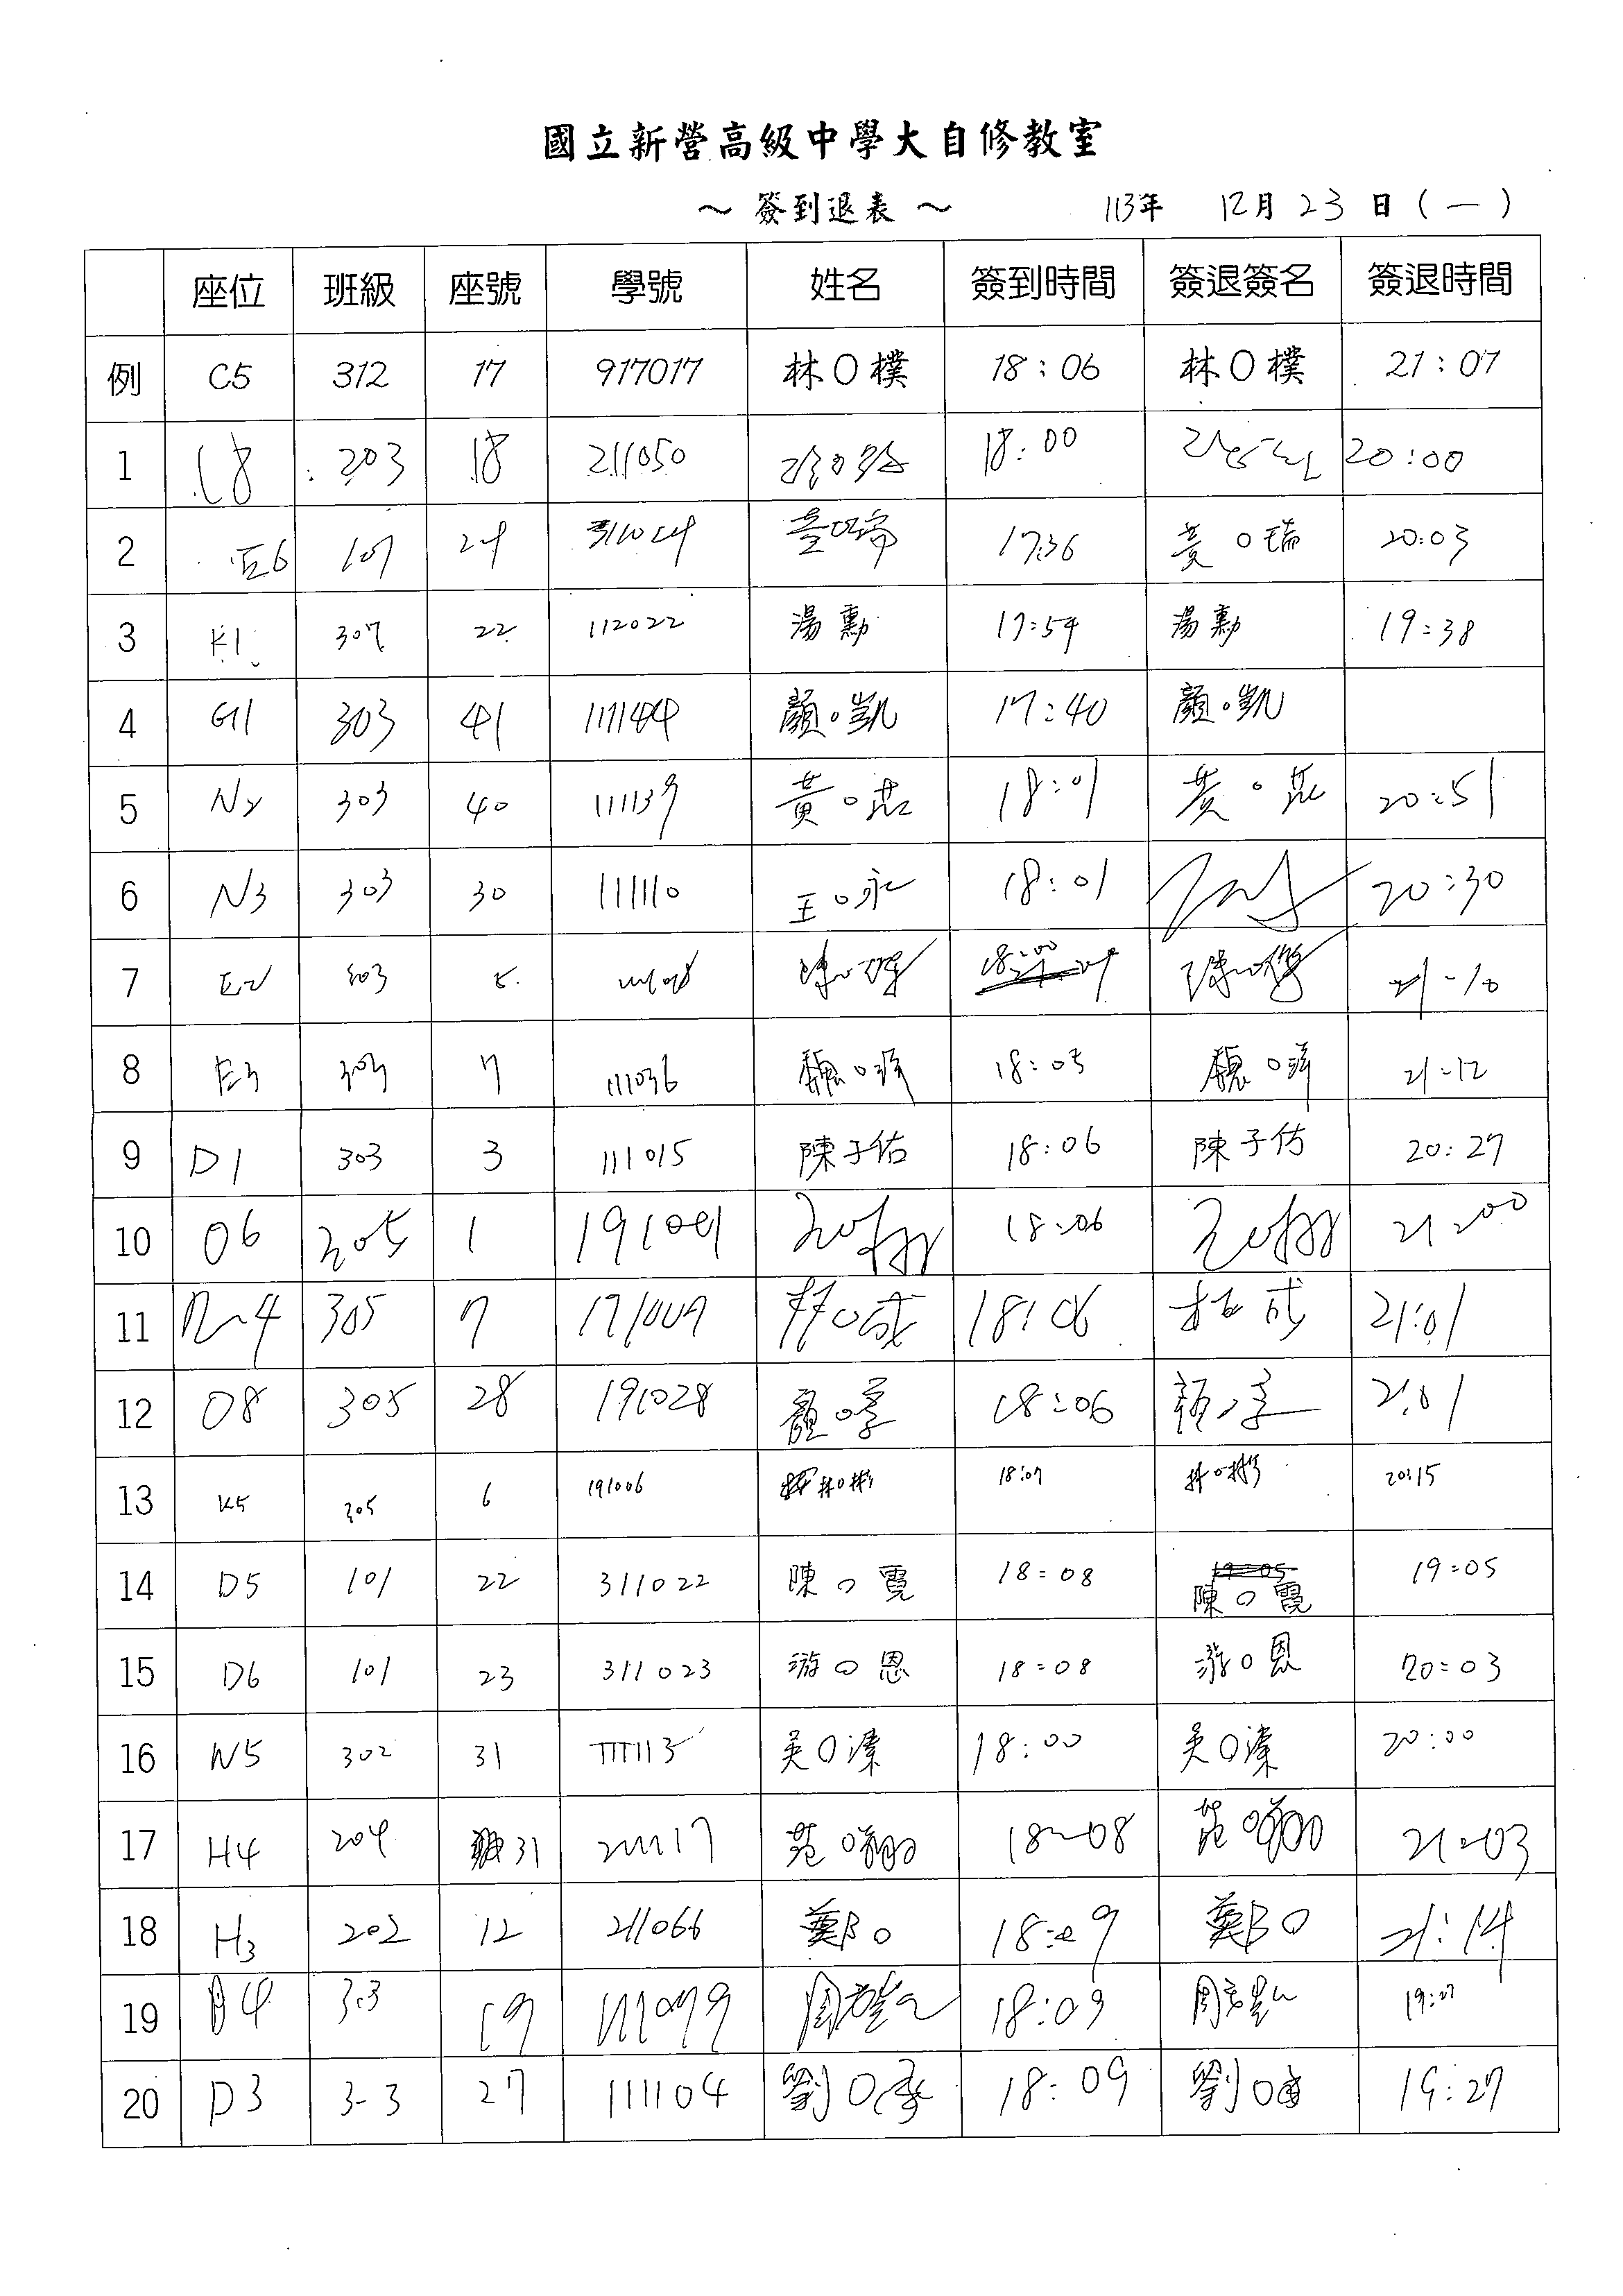 國立新營高級中學大自修教室
～ 簽到退表 ～ 113年 12月 23 日 (一)
座位 班級 座號 學號 姓名 簽到時間 簽退簽名 簽退時間
例 C5 312 17 917017 林O樸 18:06 林O樸 21:07
1 C8 203 18 211050 18:00 20:00
2 E6 107 24 17:36 黃O瑞 20:03
3 K1 307 22 112022 湯勳 17:54 湯勳 19:38
4 G1 303 41 111144 顏O凱 17:40 顏O凱
5 N2 303 40 111139 黃O芯 18:01 黃O芯 20:51
6 N3 303 30 111110 王O永 18:01 20:30
7 E2 303 陳O 18:00 陳O 21:10
8 E3 303 7 111036 魏O 18:05 魏O 21:12
9 D1 303 3 111015 陳子佑 18:06 陳子佑 20:27
10 O6 305 1 191001 18:06 21:00
11 305 7 191007 林O成 18:06 林O成 21:01
12 O8 305 28 191028 顏O 18:06 顏 21:01
13 K5 305 6 191006 林O彬 18:07 林O彬 20:15
14 D5 101 22 311022 陳O霓 18:08 陳O霓 19:05
15 D6 101 23 311023 游O恩 18:08 游O恩 20:03
16 N5 302 31 111113 吳O潔 18:00 吳O潔 20:00
17 H4 204 31 211117 范O翔 18:08 范O翔 21:03
18 H3 202 12 211066 鄭O 18:09 鄭O 21:14
19 D4 303 19 111079 周 18:09 周 19:27
20 D3 3-3 27 111104 劉O 18:09 劉O 19:27